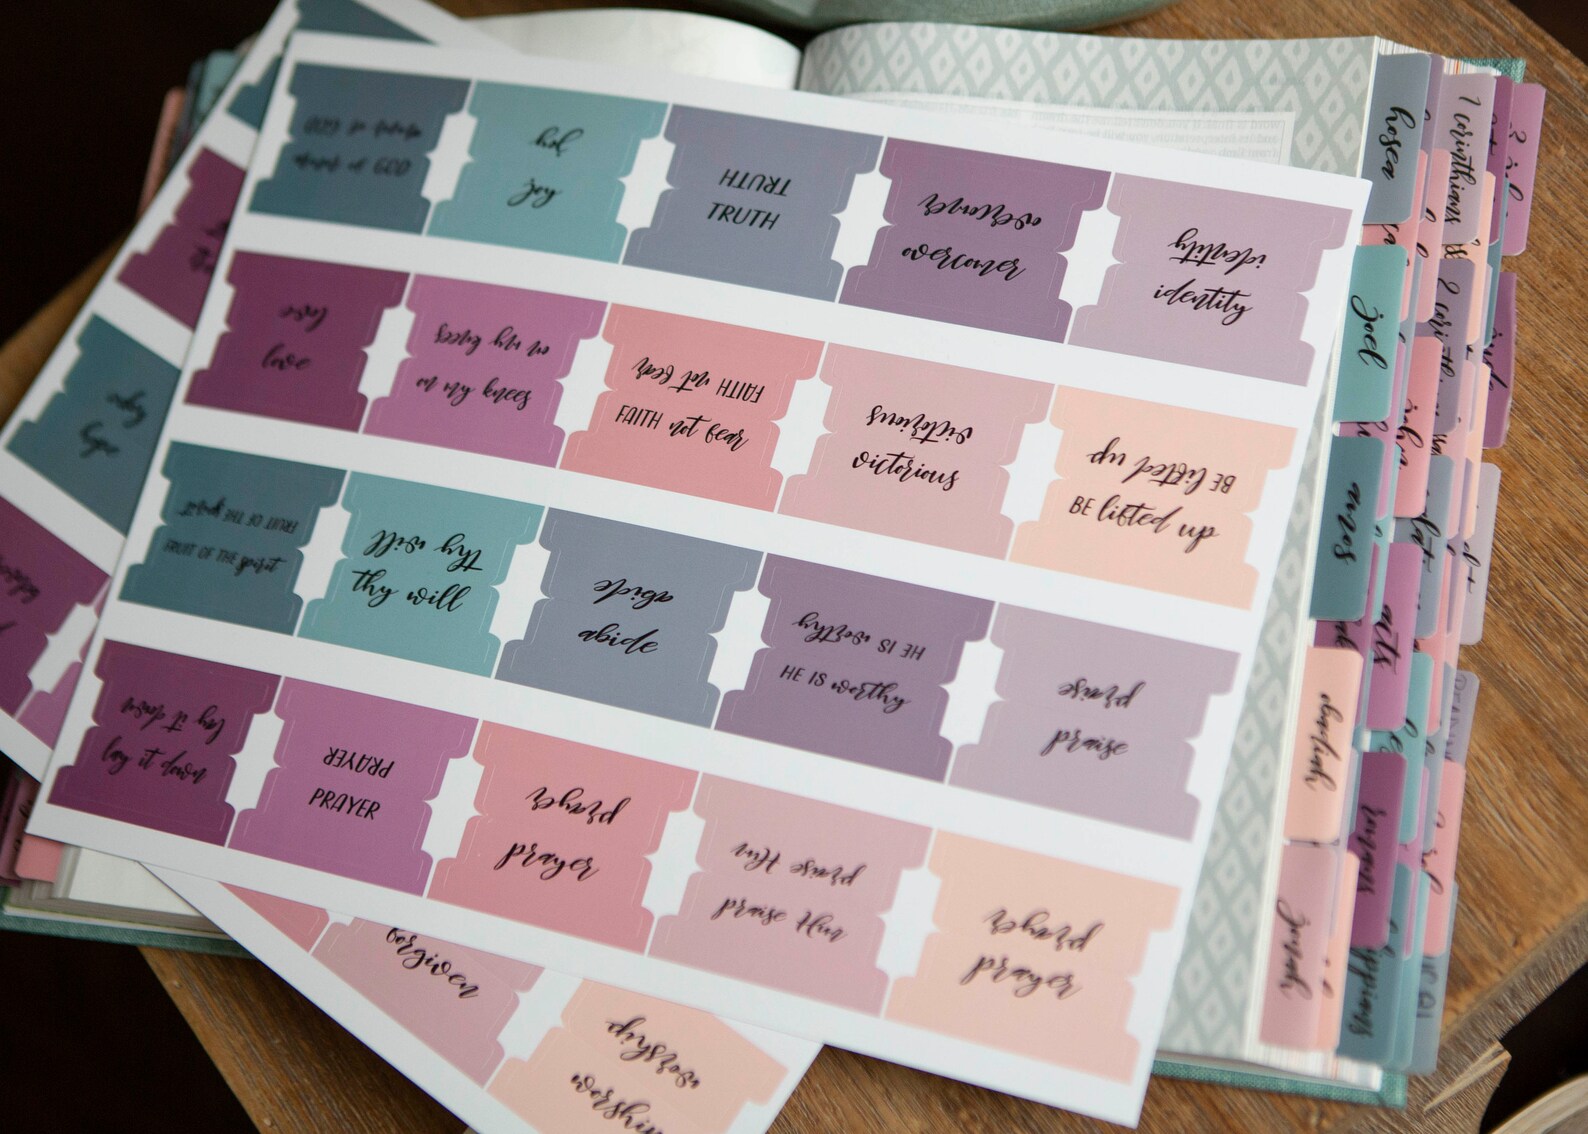 joy
joy
TRUTH
TRUTH
overcomer
overcomer
identity
identity
love
love
on my knees
on my knees
FAITH not fear
FAITH not fear
victorious
victorious
BE lifted up
BE lifted up
FRUIT OF THE spirit
FRUIT OF THE spirit
thy will
thy will
abide
abide
HE IS worthy
HE IS worthy
praise
praise
lay it down
lay it down
PRAYER
PRAYER
prayer
prayer
praise Him
praise Him
prayer
prayer
hope
hope
forgiven
worship
worship
hosea
joel
amos
obadiah
jonah
1 corinthians
acts
romans
jude